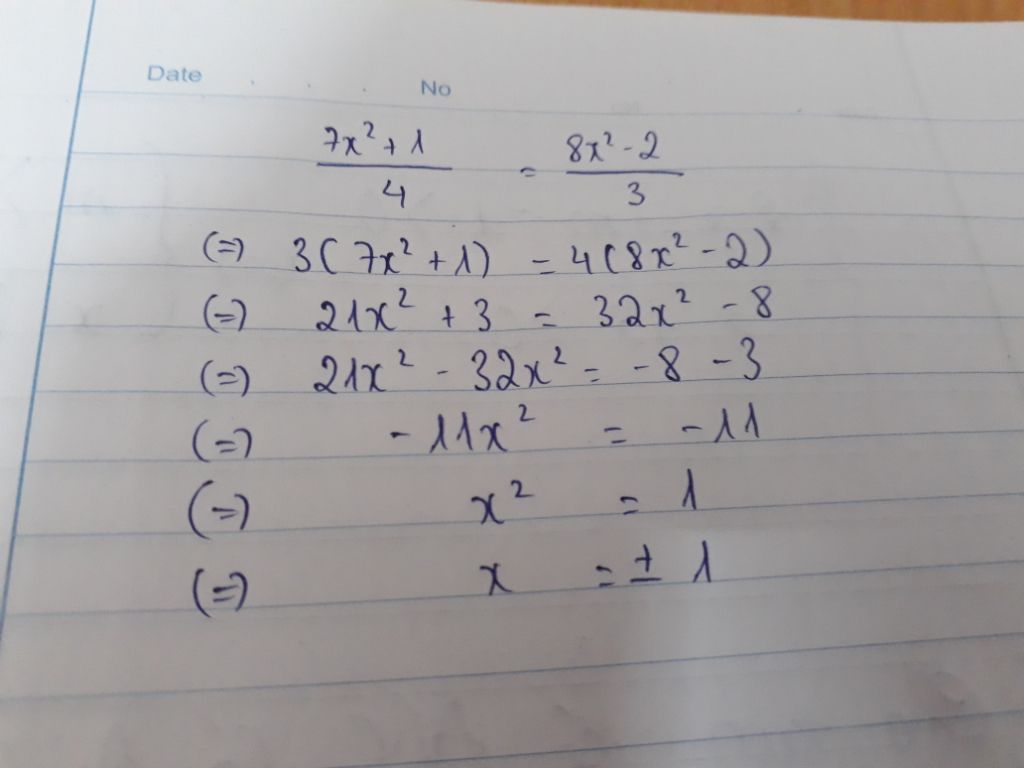 Date No
7x² + 1 / 4 = 8x² - 2 / 3
(=) 3(7x² + 1) = 4(8x² - 2)
(=) 21x² + 3 = 32x² - 8
(=) 21x² - 32x² = -8 - 3
(=) -11x² = -11
(=) x² = 1
(=) x = ± 1